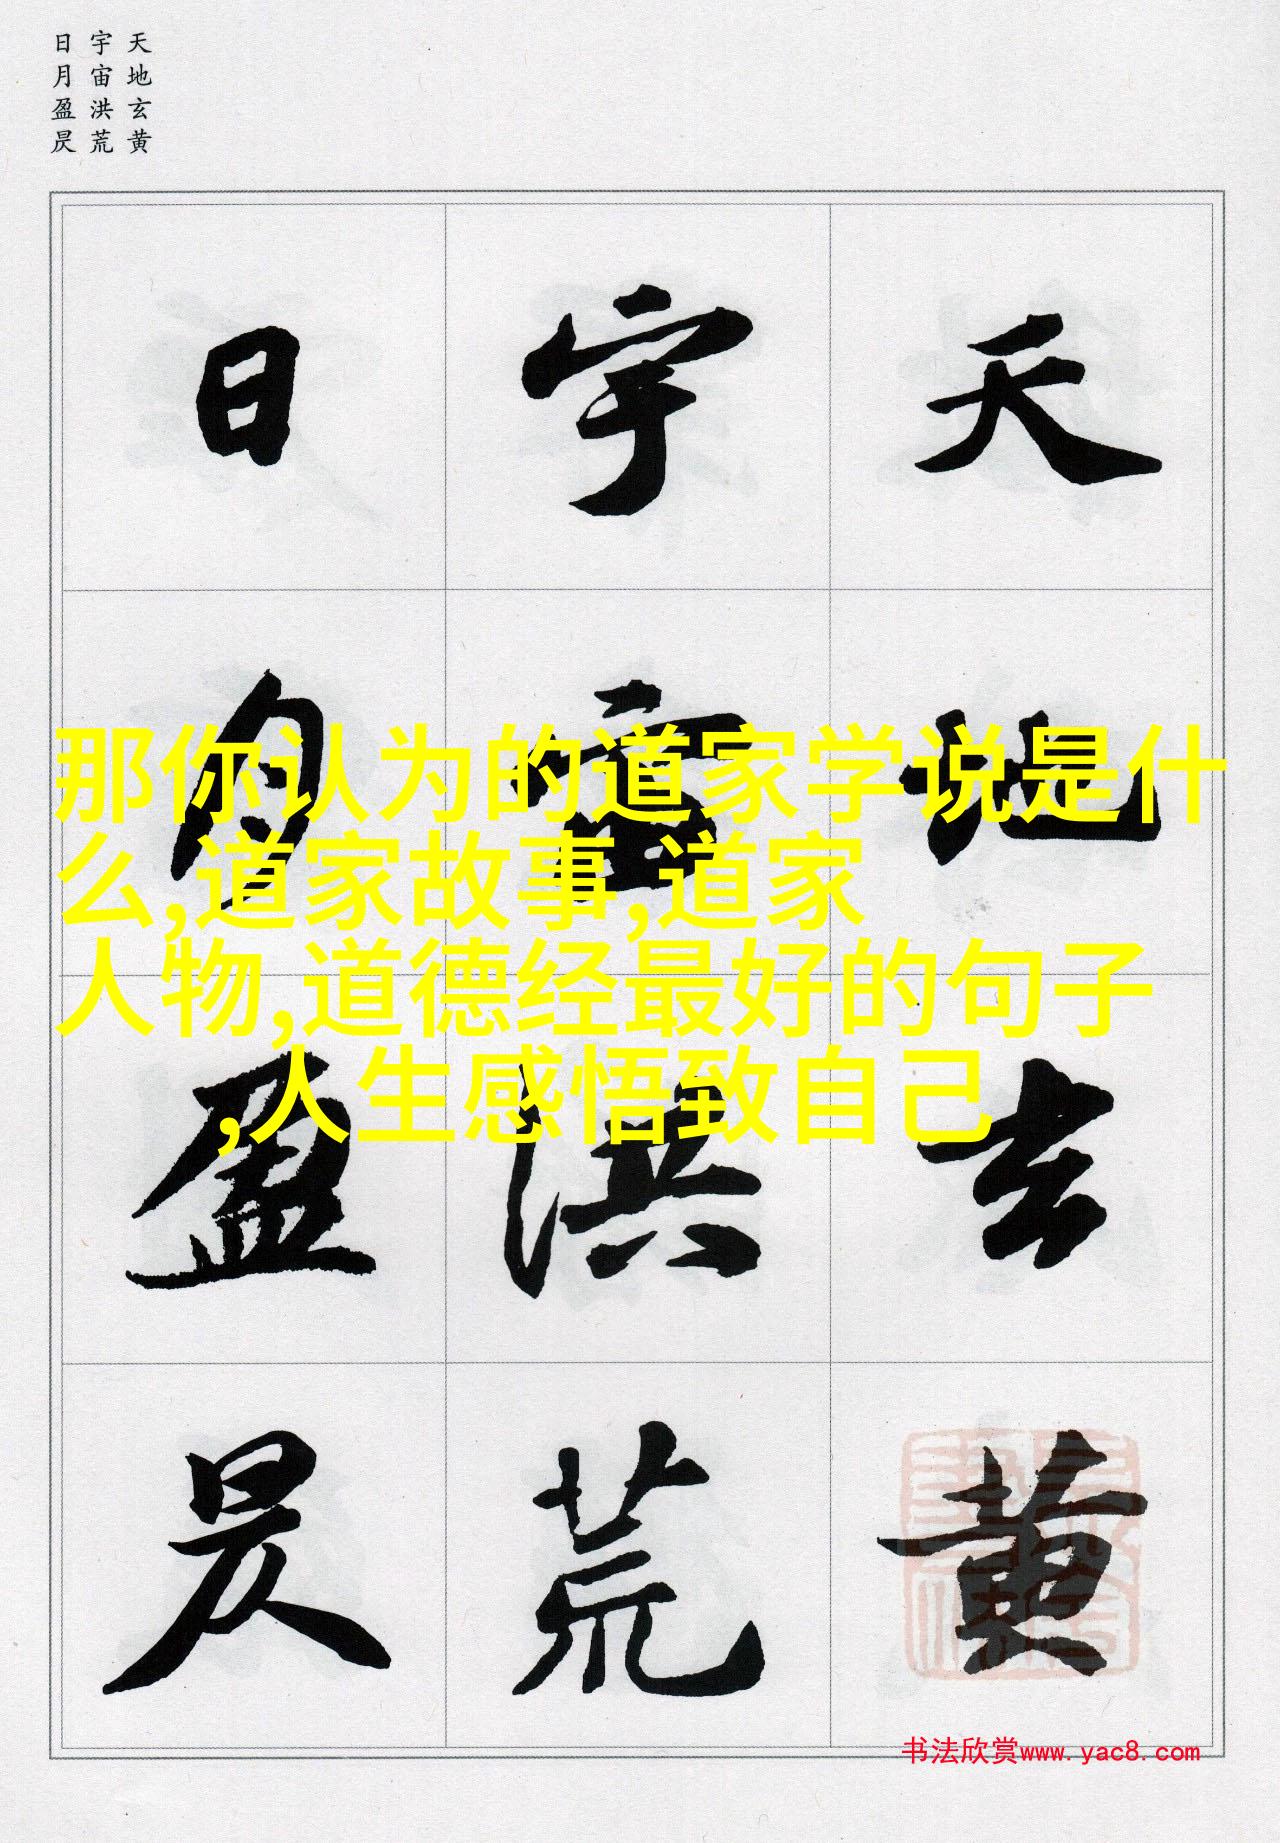 天地玄黄
宇宙洪荒
日月盈昃
天地玄黄
宇宙洪荒
日月盈昃
那你认为的道家学说是什
么,道家故事,道家
人物,道德经最好的句子
,人生感悟致自己
书法欣赏www.yac8.com